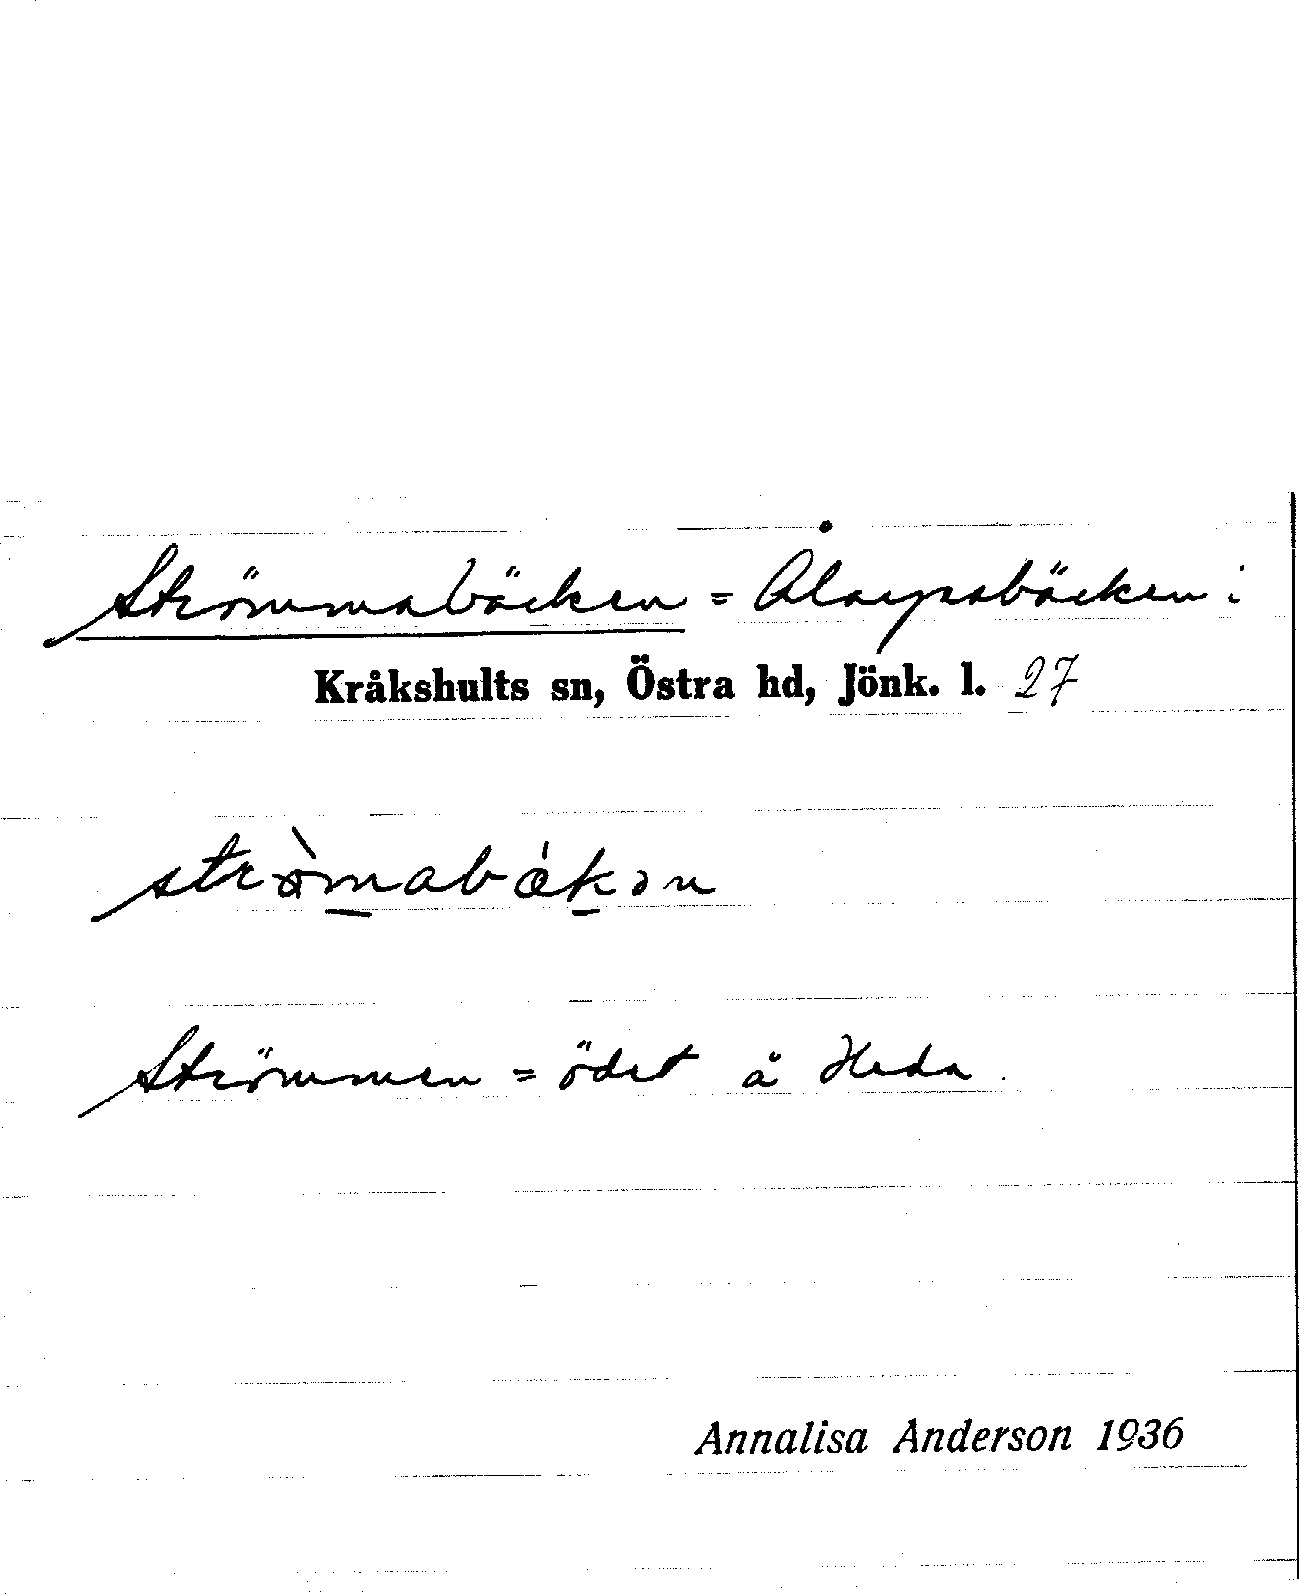 Strömmabäcken = Ålarpsbäcken i
Kråkshults sn, Östra hd, Jönk. l. 27
strømabækən
Strömmen = ödet å Heda.
Annalisa Anderson 1936